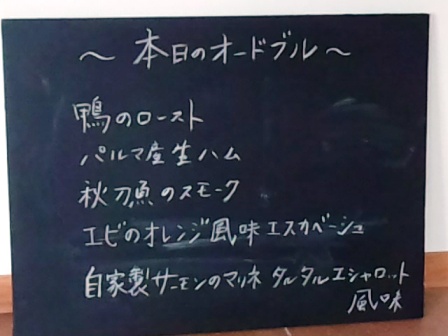 ～ 本日のオードブル ～
鴨のロースト
パルマ産生ハム
秋刀魚のスモーク
エビのオレンジ風味エスカベーシュ
自家製サーモンのマリネ タルタルエシャロット
風味